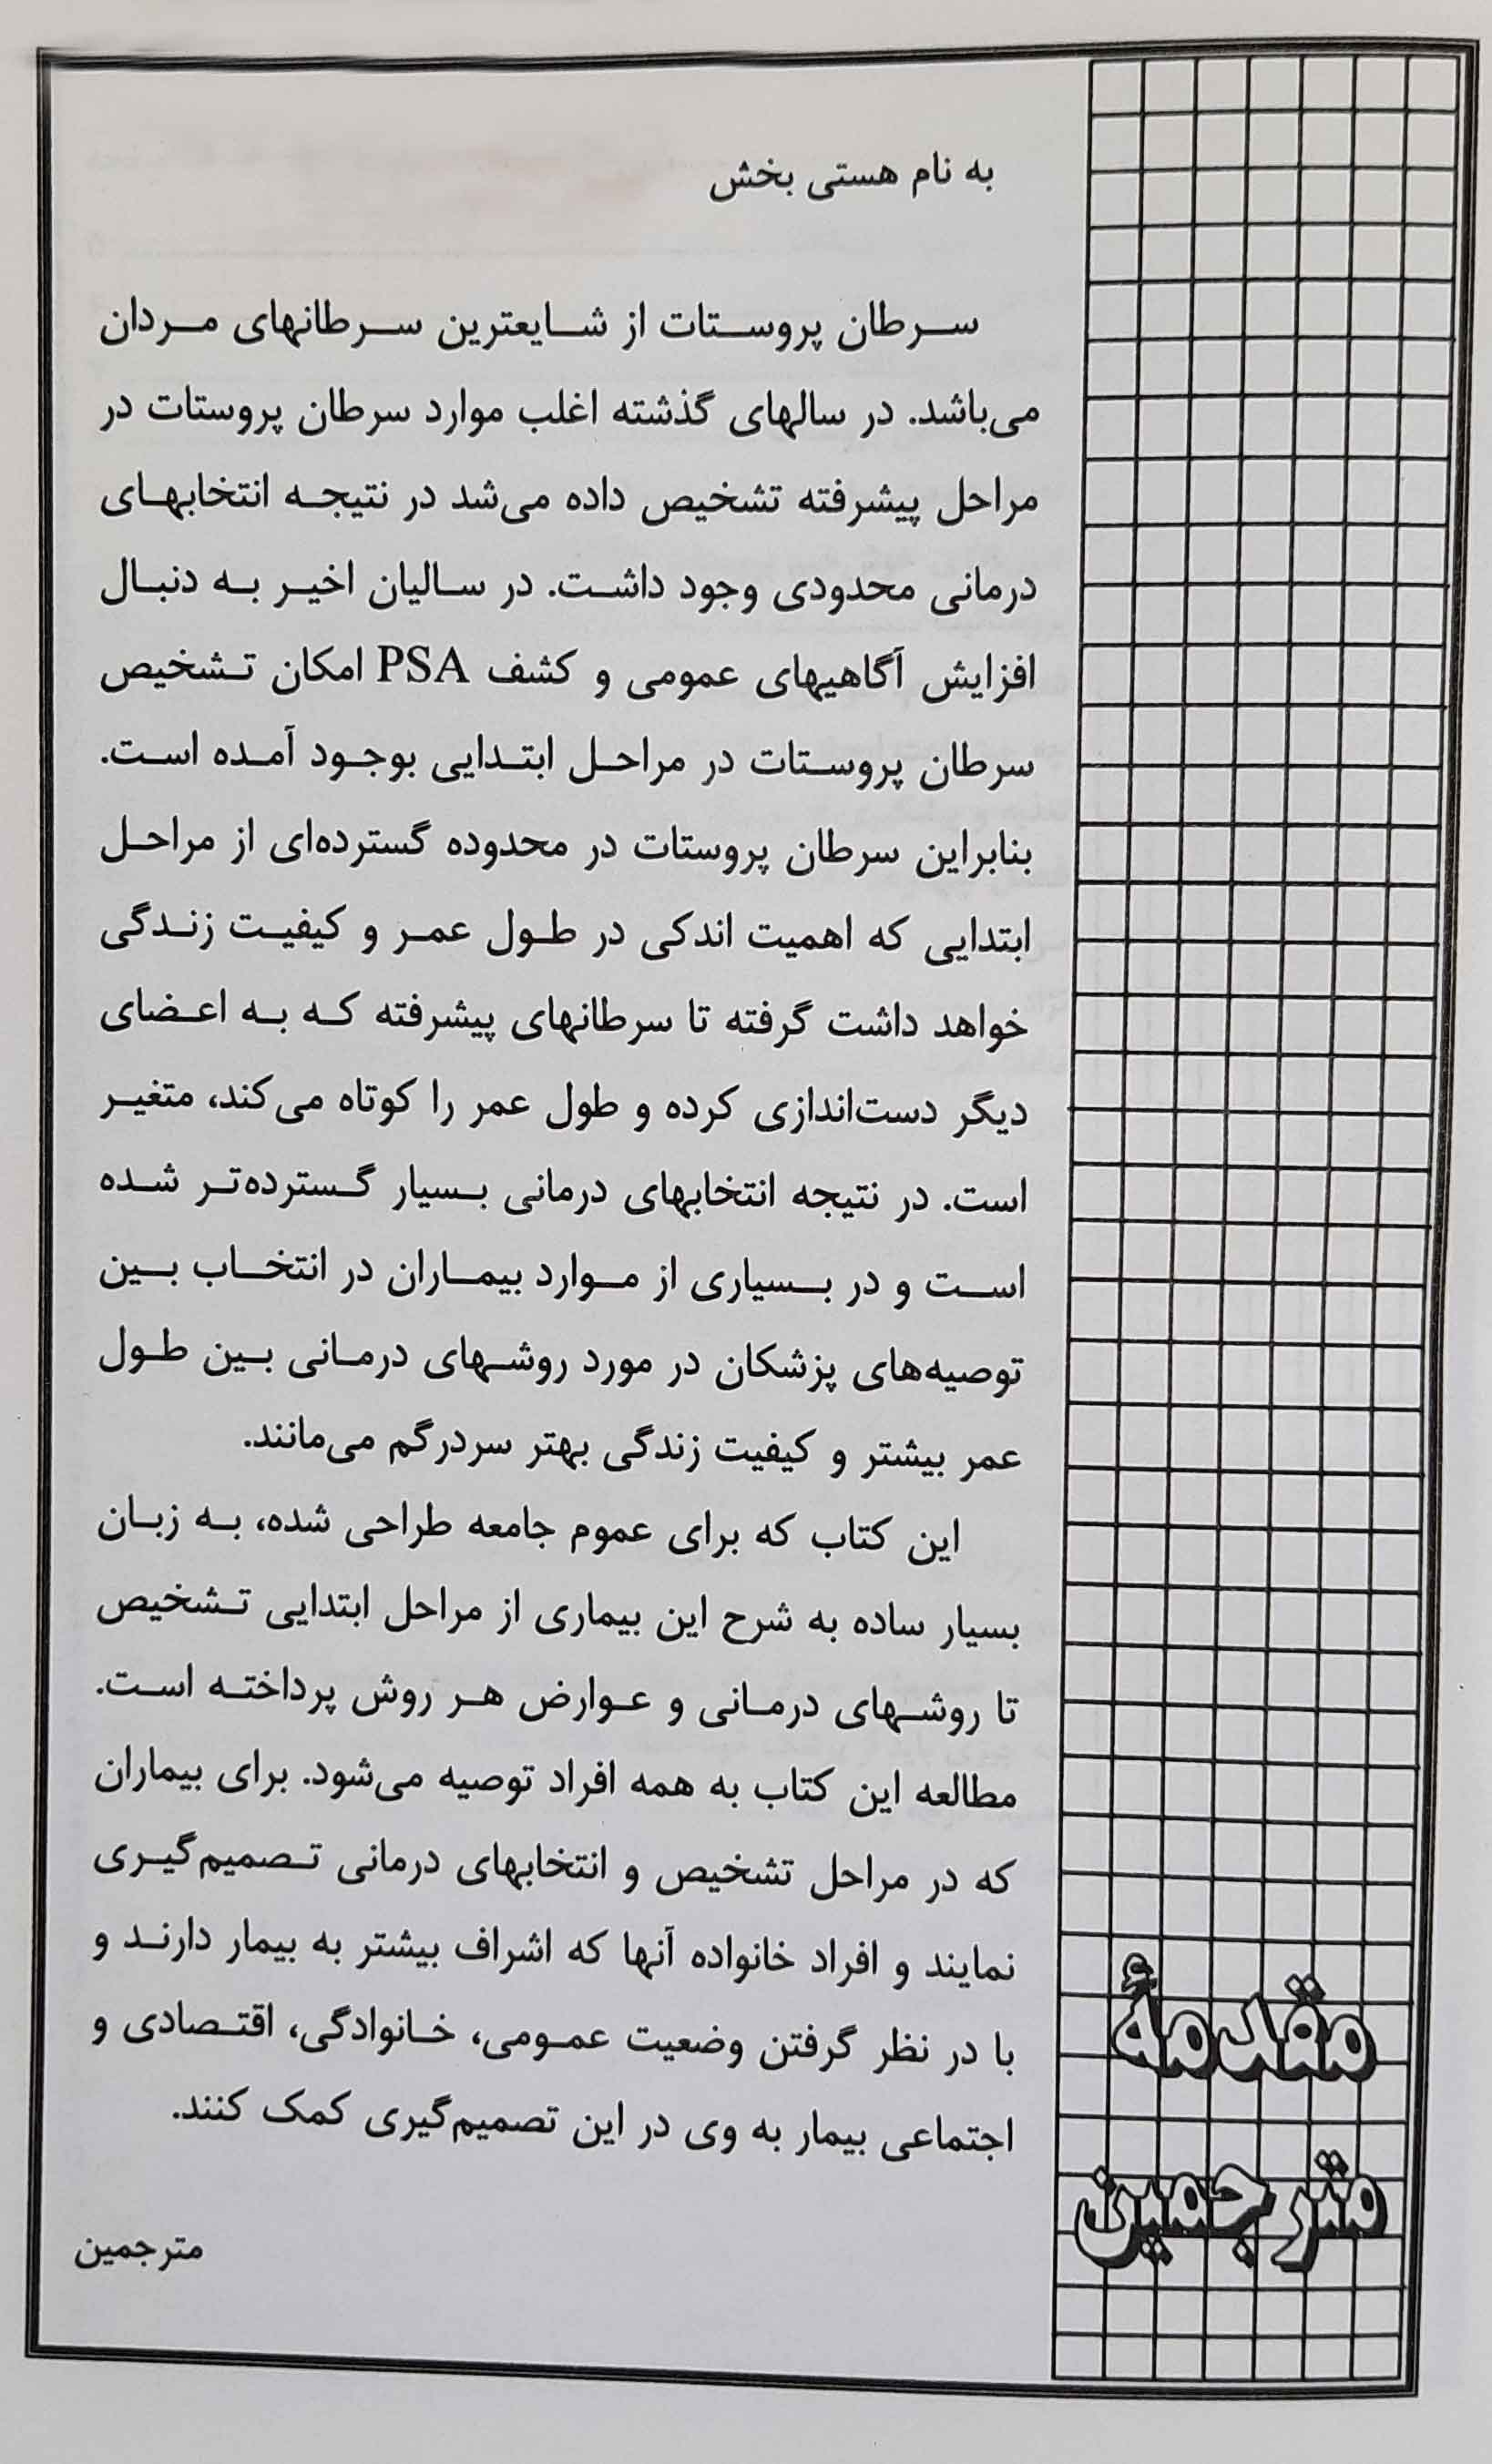 به نام هستی بخش
سرطان پروستات از شایعترین سرطانهای مردان
می‌باشد. در سالهای گذشته اغلب موارد سرطان پروستات در
مراحل پیشرفته تشخیص داده می‌شد در نتیجه انتخابهای
درمانی محدودی وجود داشت. در سالیان اخیر به دنبال
افزایش آگاهیهای عمومی و کشف PSA امکان تشخیص
سرطان پروستات در مراحل ابتدایی بوجود آمده است.
بنابراین سرطان پروستات در محدوده گسترده‌ای از مراحل
ابتدایی که اهمیت اندکی در طول عمر و کیفیت زندگی
خواهد داشت گرفته تا سرطانهای پیشرفته که به اعضای
دیگر دست‌اندازی کرده و طول عمر را کوتاه می‌کند، متغیر
است. در نتیجه انتخابهای درمانی بسیار گسترده‌تر شده
است و در بسیاری از موارد بیماران در انتخاب بین
توصیه‌های پزشکان در مورد روشهای درمانی بین طول
عمر بیشتر و کیفیت زندگی بهتر سردرگم می‌مانند.
این کتاب که برای عموم جامعه طراحی شده، به زبان
بسیار ساده به شرح این بیماری از مراحل ابتدایی تشخیص
تا روشهای درمانی و عوارض هر روش پرداخته است.
مطالعه این کتاب به همه افراد توصیه می‌شود. برای بیماران
که در مراحل تشخیص و انتخابهای درمانی تصمیم‌گیری
نمایند و افراد خانواده آنها که اشراف بیشتر به بیمار دارند و
با در نظر گرفتن وضعیت عمومی، خانوادگی، اقتصادی و
اجتماعی بیمار به وی در این تصمیم‌گیری کمک کنند.
مترجمین
مقدمهٔ
مترجمین